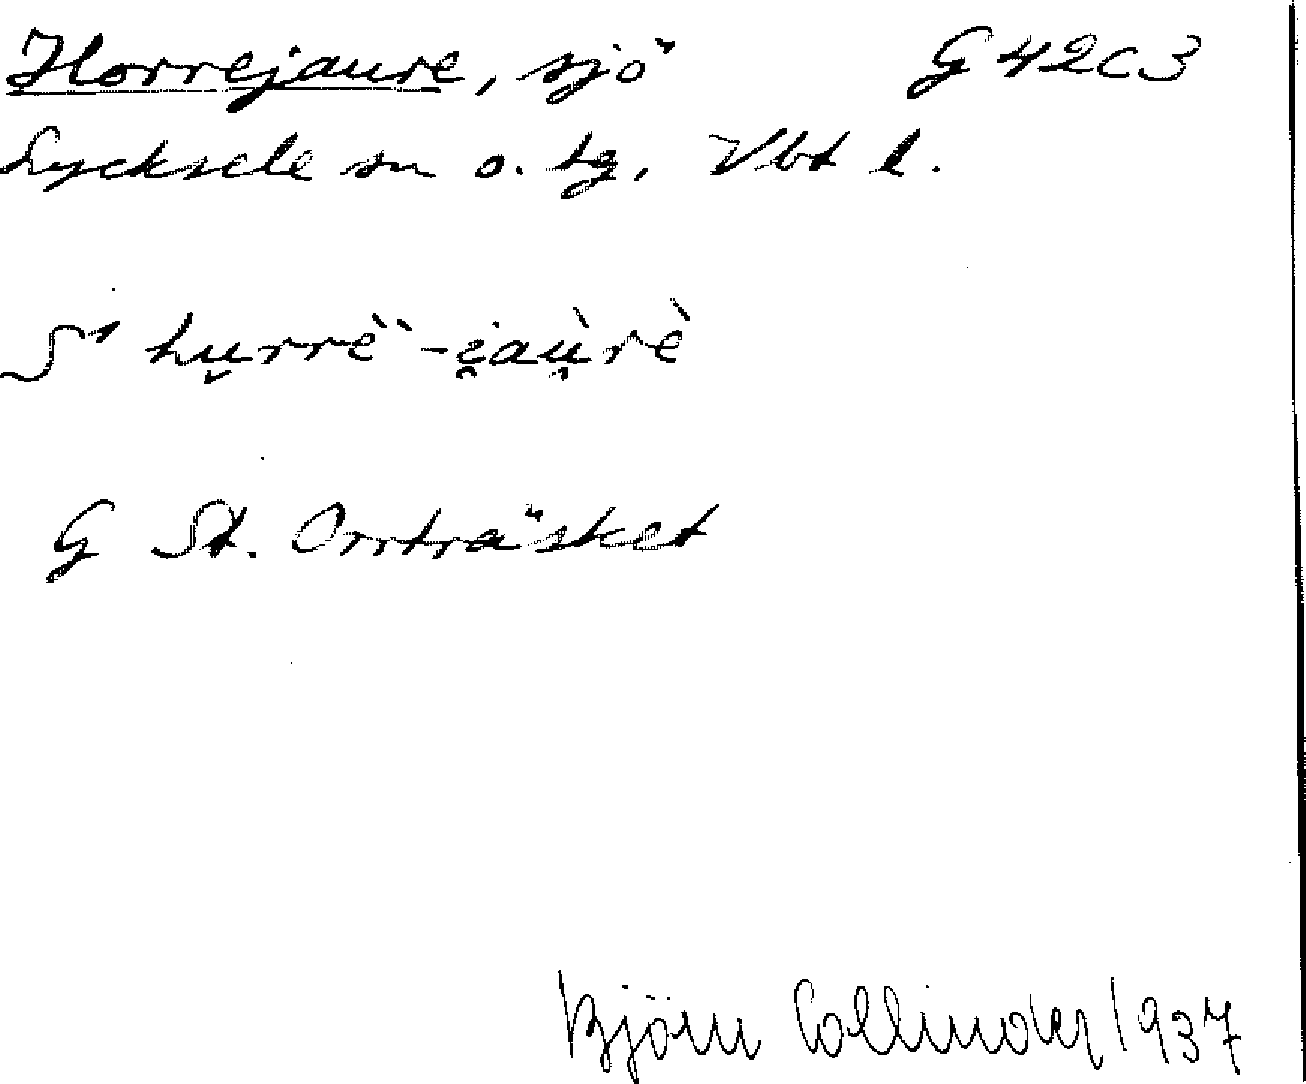 Horrejaure, sjö G 42 C 3
Lycksele sn o. tg. Vbt l.
hu̬rrè̀-i̯aù̯rè
G St. Orrträsket
Björn Collinder 1937